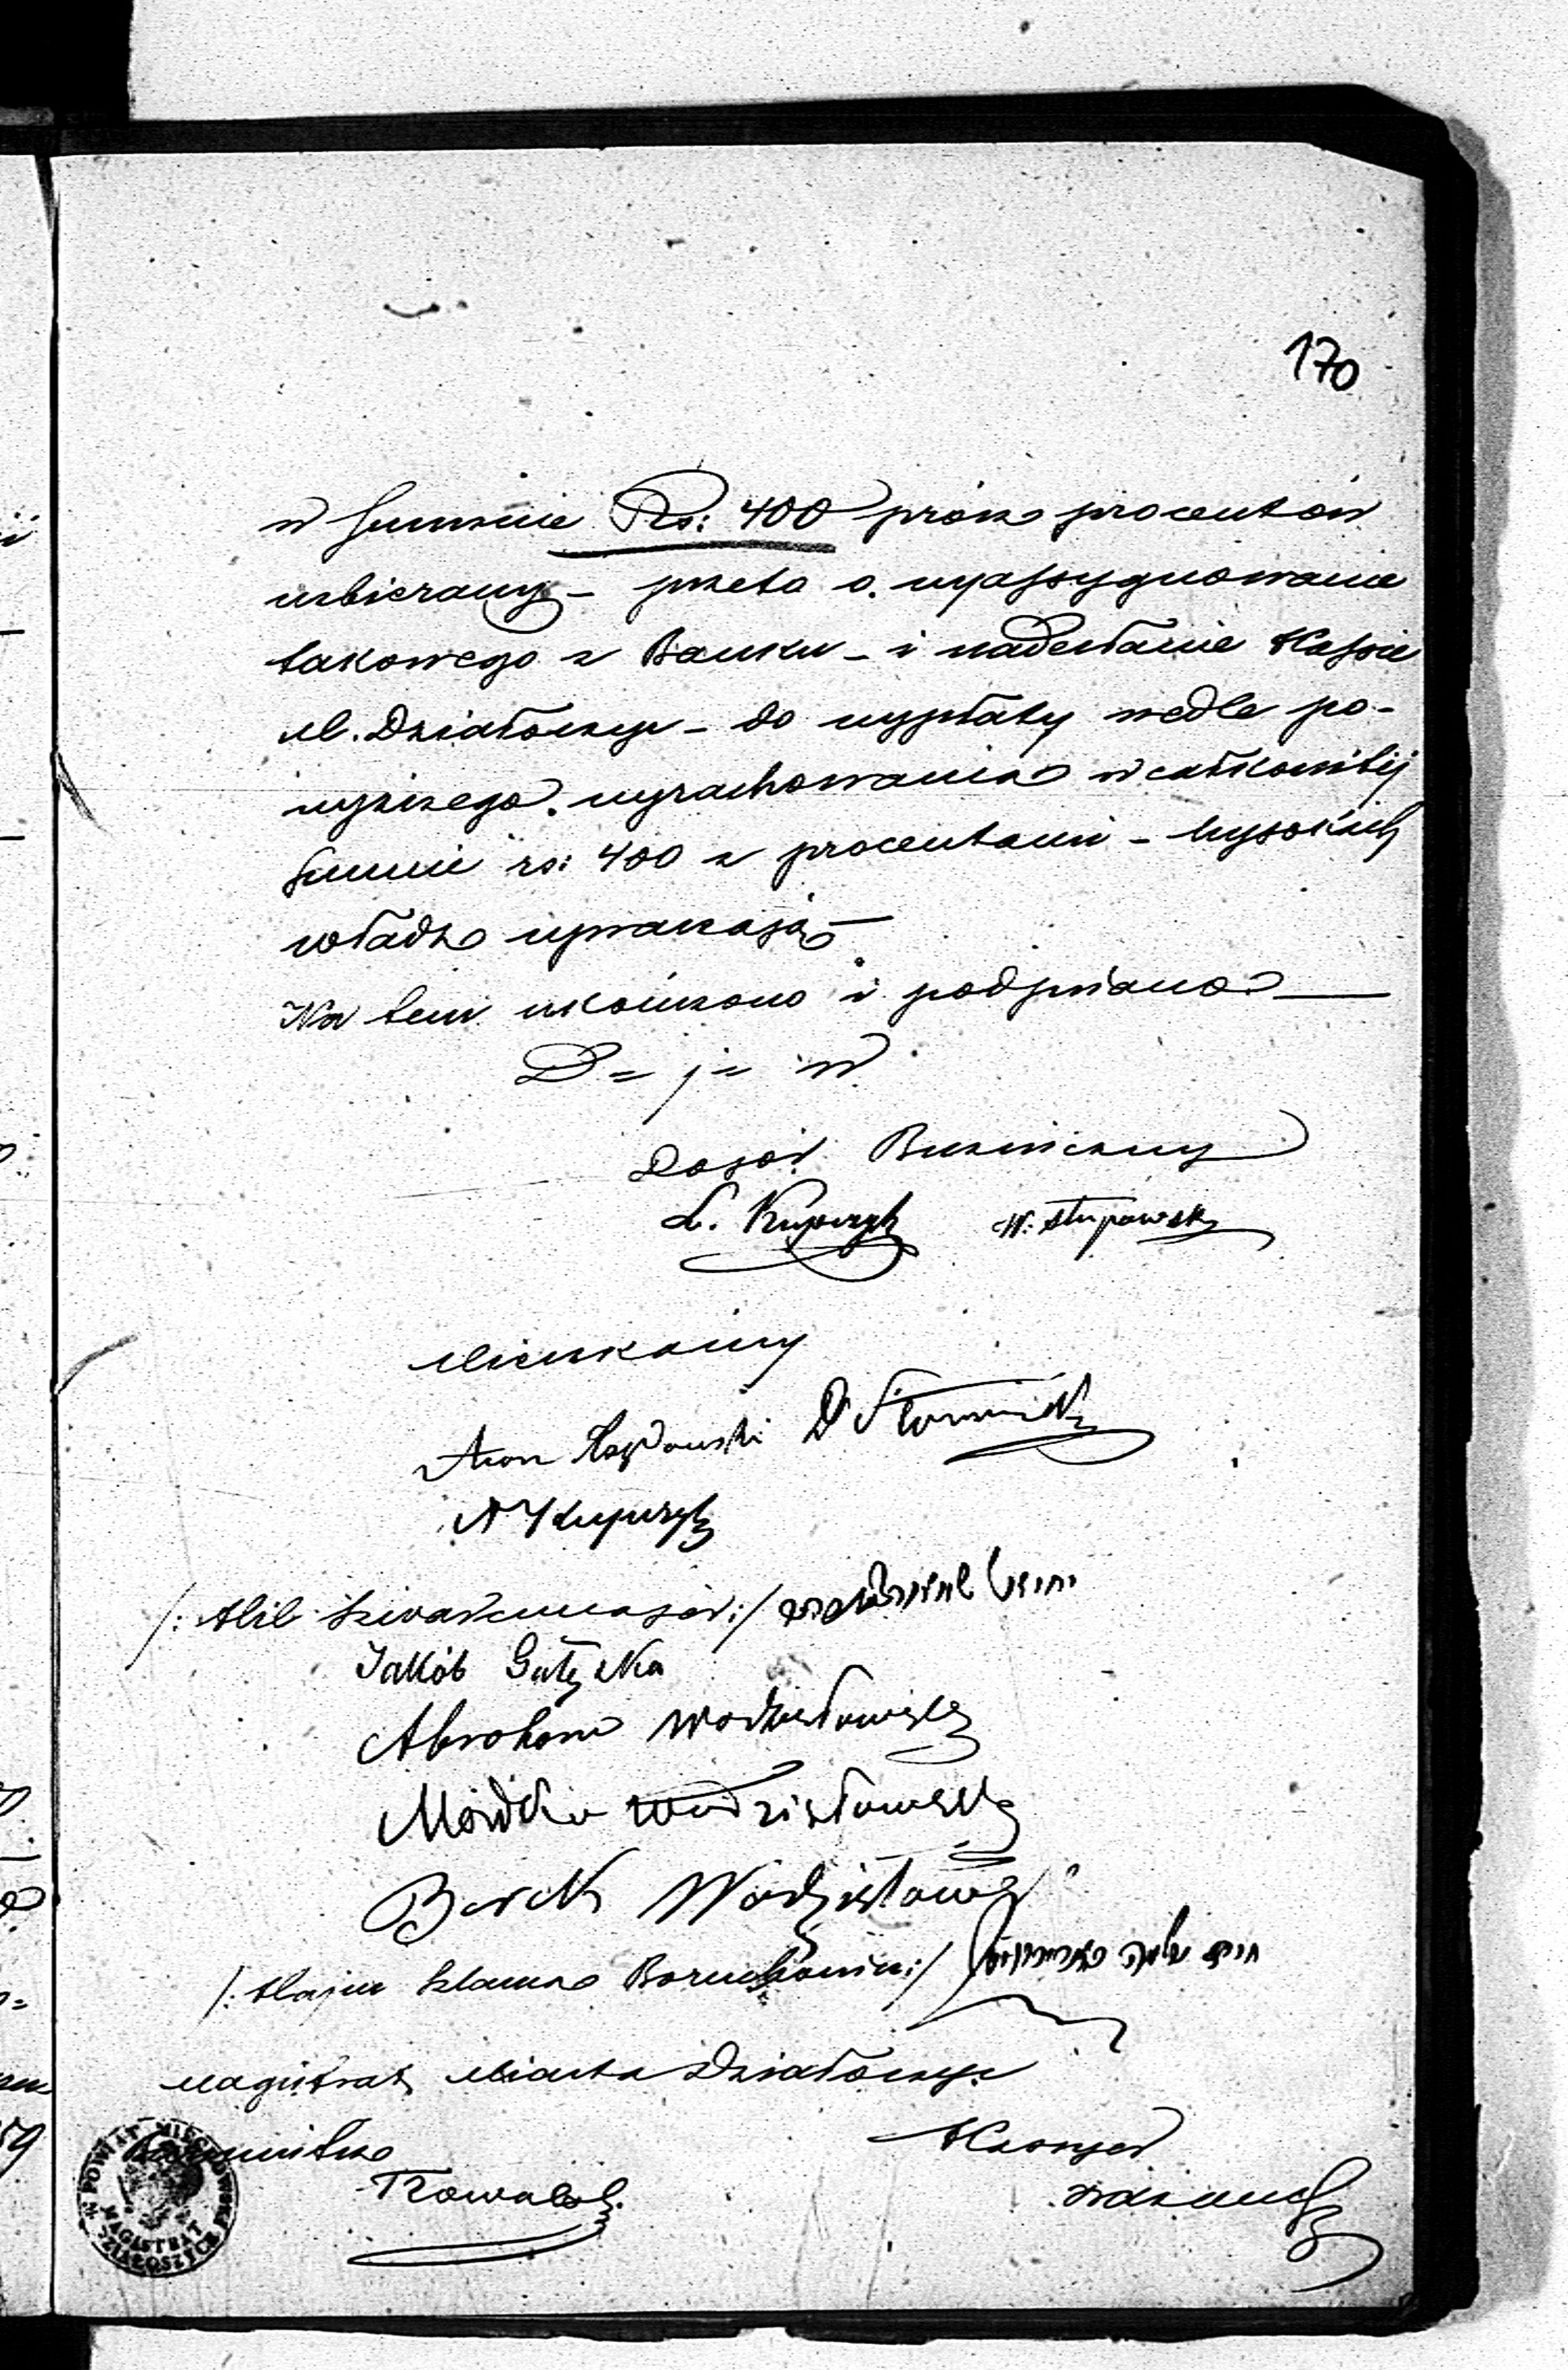 170
w Summie Rs: 400 prócz procentów
uzbierany – przeto o wyassygnowanie
takowego z Banku – i nadesłanie Kassie
M. Działoszyc – do wypłaty wedle po-
wyższego wyrachowania w całkowitéj
Summie rs: 400 z procentami – Wysokich
władz upraszają –
Na tem ukończono i podpisano
D = j = w
Dozór Bużniczny
L. Kupczyk W. Stupowsky
Mieszkańcy
Aron
N Kupczyk
Jakób
Abraham Wodzisławski
Wodzisławski
Berek Wodzisławski
/: Majer Szlama :/
Magistrat Miasta Działoszyc
Burmistrz Kassyer
Kowalski
W POWIAT MIECHOWSKI
MAGISTRAT
DZIAŁOSZYCE